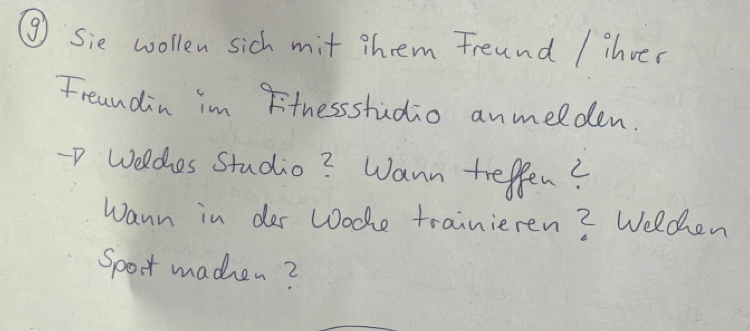 ⑨ Sie wollen sich mit ihrem Freund / ihrer
Freundin im Fitnessstudio anmelden.
→ Welches Studio? Wann treffen?
Wann in der Woche trainieren? Welchen
Sport machen?